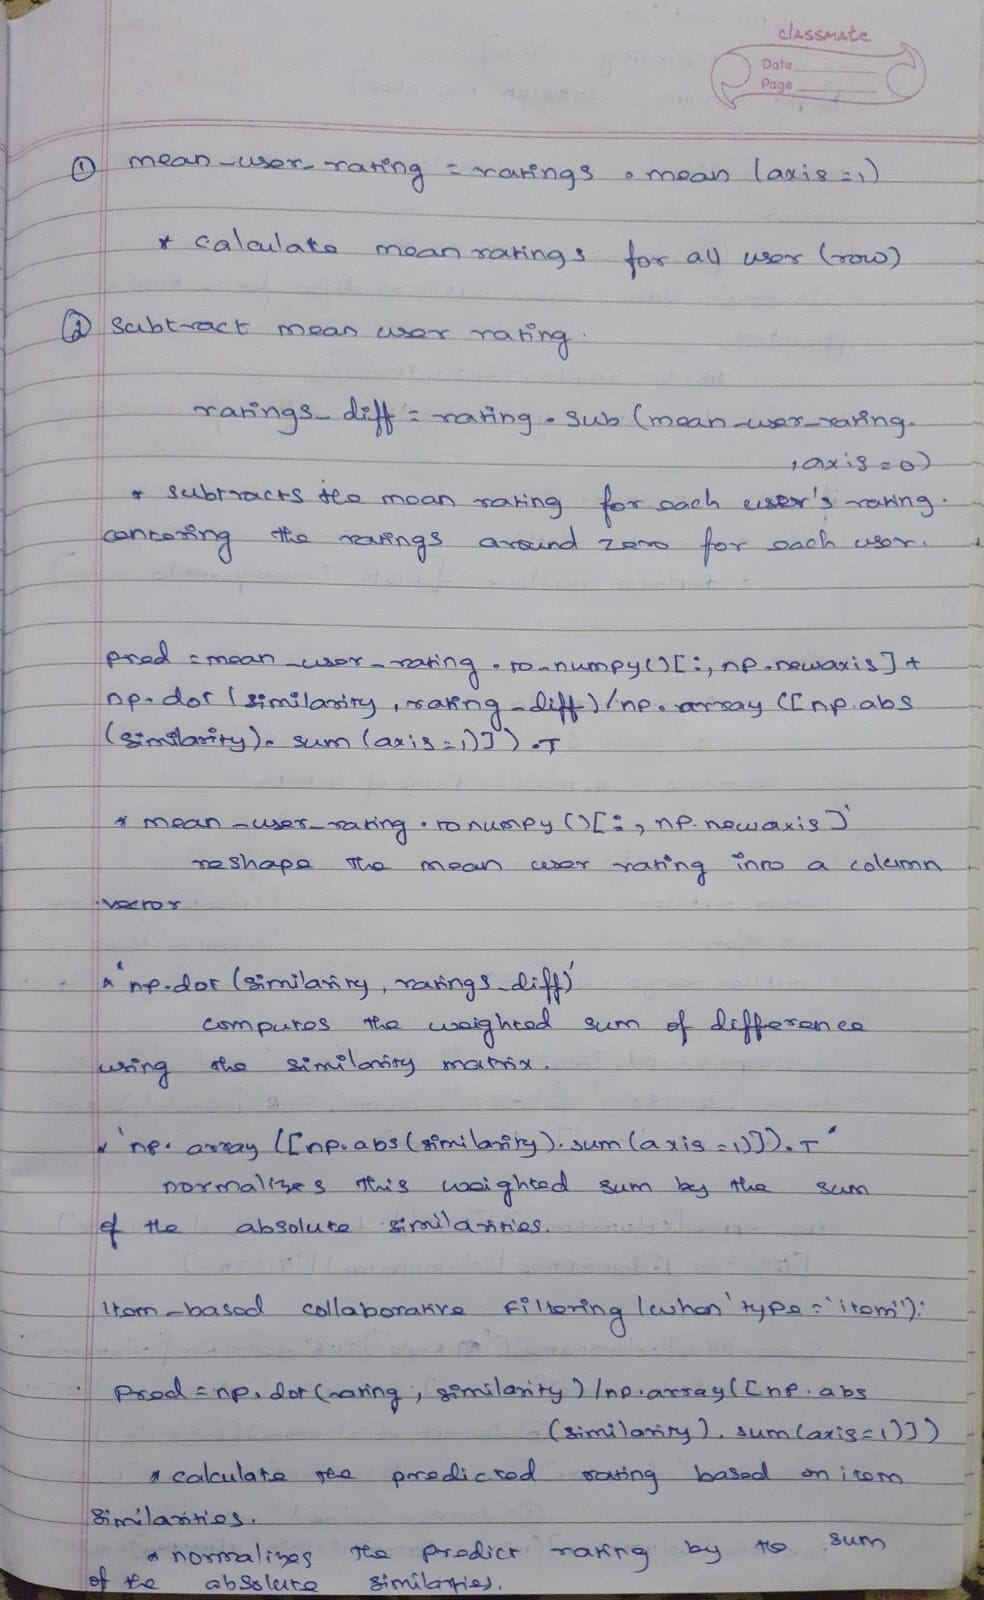 classmate
Date
Page
① mean-user-rating = ratings . mean (axis=1)
* calculate mean ratings for all user (row)
② Subtract mean user rating.
ratings_diff = rating . sub (mean-user-rating.
,axis=0)
* subtracts the mean rating for each user's rating.
centering the ratings around zero for each user.
pred = mean_user_rating . to_numpy()[:, np.newaxis] +
np.dot (similarity, rating_diff) / np.array ([np.abs
(similarity). sum (axis=1)]) .T
* mean_user_rating . tonumpy ()[:, np.newaxis]'
reshape the mean user rating into a column
vector
* 'np.dot (similarity, ratings_diff)'
computes the weighted sum of difference
using the similarity matrix.
* 'np. array ([np.abs (similarity). sum (axis=1)]).T'
normalizes this weighted sum by the sum
of the absolute similarities.
Item-based collaborative filtering (when 'type = 'item''):
Pred = np.dot (rating, similarity) / np.array([np.abs
(similarity). sum (axis=1)])
* calculate the predicted rating based on item
Similarities.
* normalizes the predict rating by to sum
of the absolute similaries.